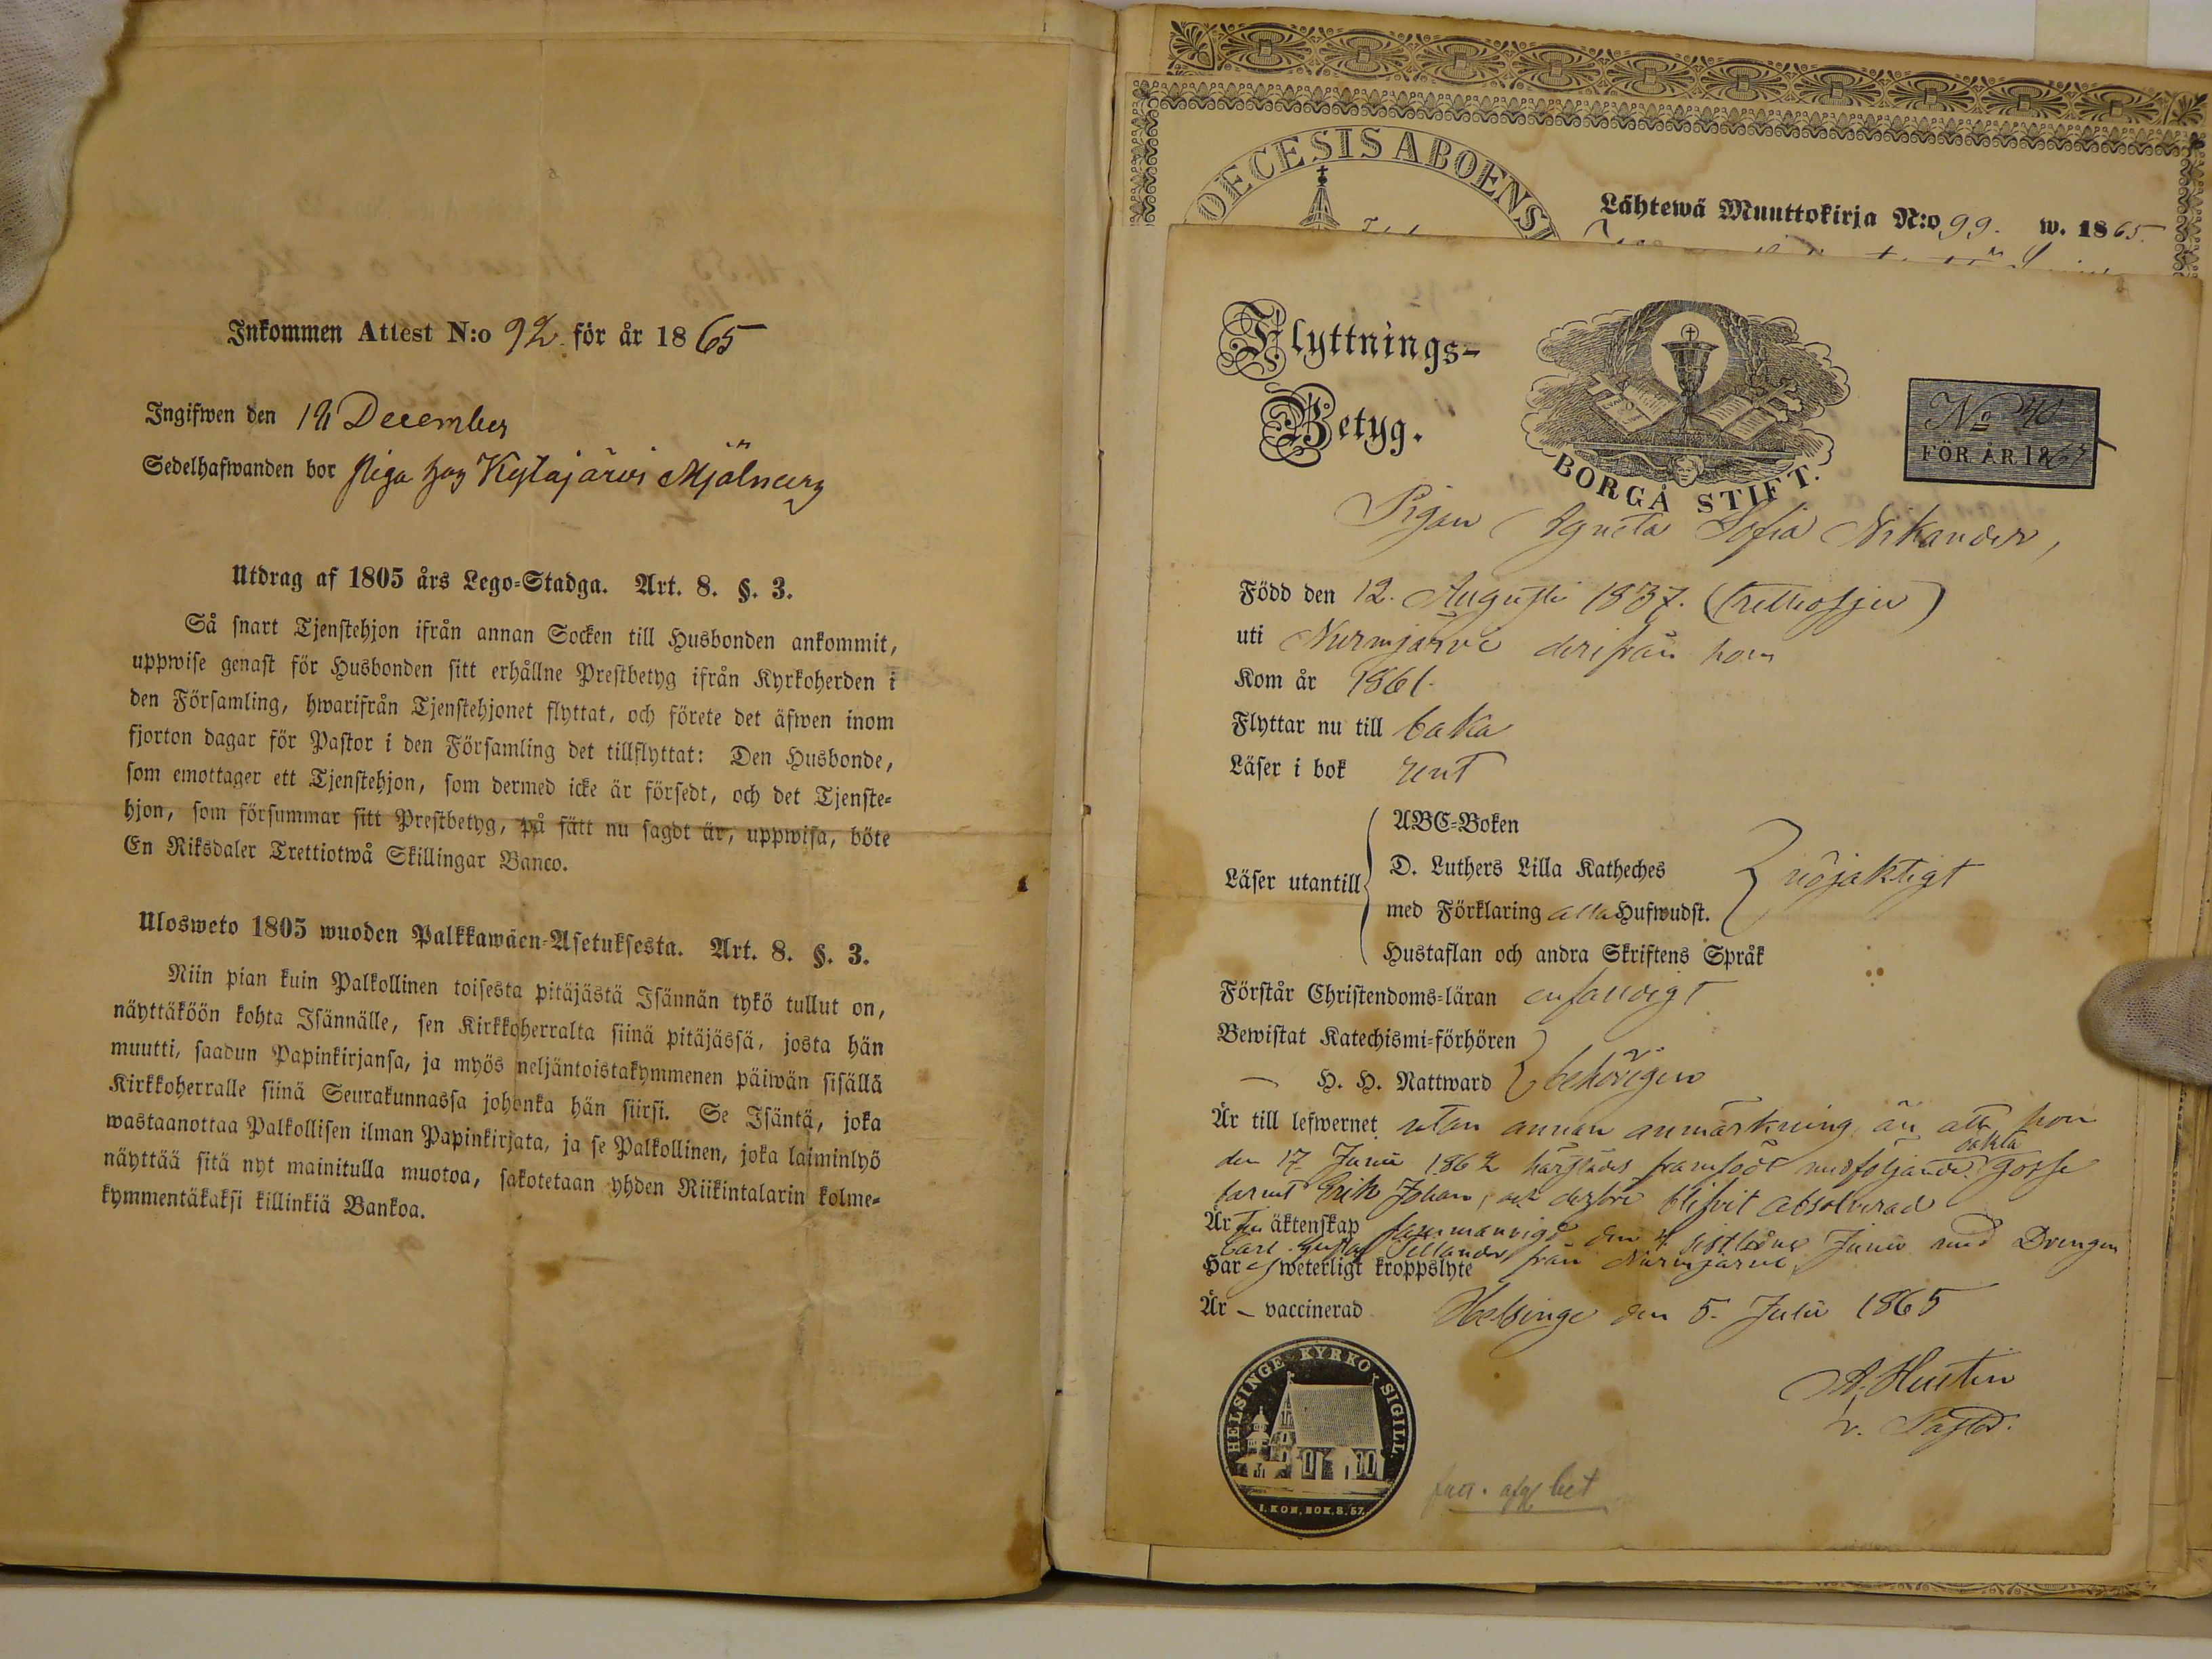 Inkommen Attest N:o 92. för år 1865
Ingifwen den 12 December
Sedelhafwanden bor piga hos Kytäjärvi Mjölnarn
Utdrag af 1805 års Lego-Stadga. Art. 8. §. 3.
Så snart Tjenstehjon ifrån annan Socken till Husbonden ankommit,
uppwise genast för Husbonden sitt erhållne Prestbetyg ifrån Kyrkoherden i
den Församling, hwarifrån Tjenstehjonet flyttat, och förete det äfwen inom
fjorton dagar för Pastor i den Församling det tillflyttat: Den Husbonde,
som emottager ett Tjenstehjon, som dermed icke är försedt, och det Tjenste-
hjon, som försummar sitt Prestbetyg, på sätt nu sagdt är, uppwisa, böte
En Riksdaler Trettiotwå Skillingar Banco.
Ulosweto 1805 wuoden Palkkawäen-Asetuksesta. Art. 8. §. 3.
Niin pian kuin Palkollinen toisesta pitäjästä Isännän tykö tullut on,
näyttäköön kohta Isännälle, sen Kirkkoherralta siinä pitäjässä, josta hän
muutti, saadun Papinkirjansa, ja myös neljäntoistakymmenen päiwän sisällä
Kirkkoherralle siinä Seurakunnassa johonka hän siirsi. Se Isäntä, joka
wastaanottaa Palkollisen ilman Papinkirjata, ja se Palkollinen, joka laiminlyö
näyttää sitä nyt mainitulla muotoa, sakotetaan yhden Riikintalarin kolme-
kymmentäkaksi killinkiä Bankoa.
OECESIS ABOENSI
Lähtewä Muuttokirja N:o 99. w. 1865.
Flyttnings-
Betyg.
BORGÅ STIFT.
No 40
FÖR ÅR 1865
Pigan Agneta Sofia Nikander,
Född den 12. Augusti 1837. (trettiosju)
uti Nurmijärvi derifrån hon
Kom år 1861.
Flyttar nu till baka
Läser i bok rent
Läser utantill
ABC-Boken
D. Luthers Lilla Katheches
med Förklaring alla Hufwudst.
Hustaflan och andra Skriftens Språk
nöjaktigt
Förstår Christendoms-läran enfaldigt
Bewistat Katechismi-förhören
— H. H. Nattward
behörigen
Är till lefwernet utan annan anmärkning, än att hon
den 17 Junii 1862 härstädes framfödt medföljande oäkta gosse
barnet Erik Johan, och derföre blifvit absolverad
Är till äktenskap sammanvigd den 4 sistledne Junii med Drengen
Carl Gustaf Tellander från Nurmijärvi
Har ej weterligt kroppslyte
Är — vaccinerad. Helsinge den 5. Julii 1865
A. Hustin
v. Pastor.
HELSINGE KYRKO SIGILL
I. KON. BOK. 8. 57.